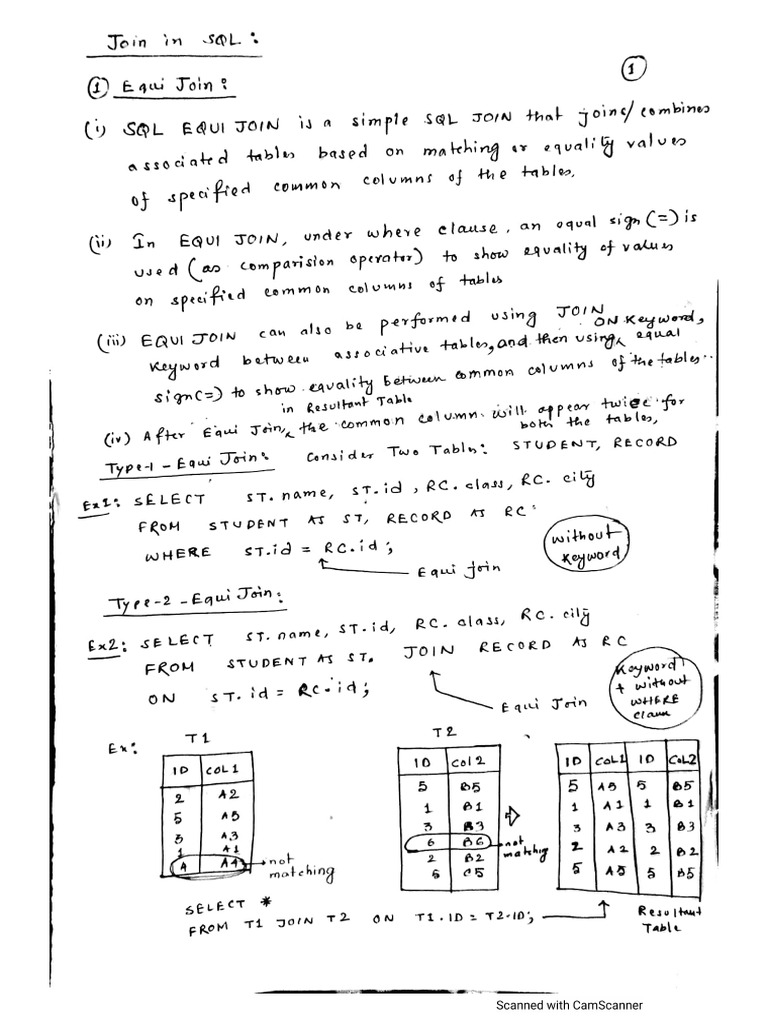 Join in SQL:
1
① Equi Join:
(i) SQL EQUI JOIN is a simple SQL JOIN that joins/combines
associated tables based on matching or equality values
of specified common columns of the tables.
(ii) In EQUI JOIN, under where clause, an equal sign (=) is
used (as comparision operator) to show equality of values
on specified common columns of tables
(iii) EQUI JOIN can also be performed using JOIN
keyword between associative tables, and then using ON keyword, equal
sign (=) to show equality between common columns of the tables.
(iv) After Equi Join, in Resultant Table the common column will appear twice for
both the tables,
Type-1 - Equi Join: Consider Two Table: STUDENT, RECORD
Ex1: SELECT ST.name, ST.id, RC.class, RC.city
FROM STUDENT AS ST, RECORD AS RC
WHERE ST.id = RC.id;
Equi join
without
keyword
Type-2 - Equi Join:
Ex2: SELECT ST.name, ST.id, RC.class, RC.city
FROM STUDENT AS ST. JOIN RECORD AS RC
ON ST.id = RC.id;
Equi Join
Keyword
+ without
WHERE
Ex:
T1
ID COL1
2 A2
5 A5
3 A3
1 A1
4 A4
not
matching
T2
ID Col2
5 B5
1 B1
3 B3
6 B6
2 B2
5 C5
not
matching
ID COL1 ID COL2
5 A5 5 B5
1 A1 1 B1
3 A3 3 B3
2 A2 2 B2
5 A5 5 B5
SELECT *
FROM T1 JOIN T2 ON T1.ID = T2.ID;
Resultant
Table
Scanned with CamScanner